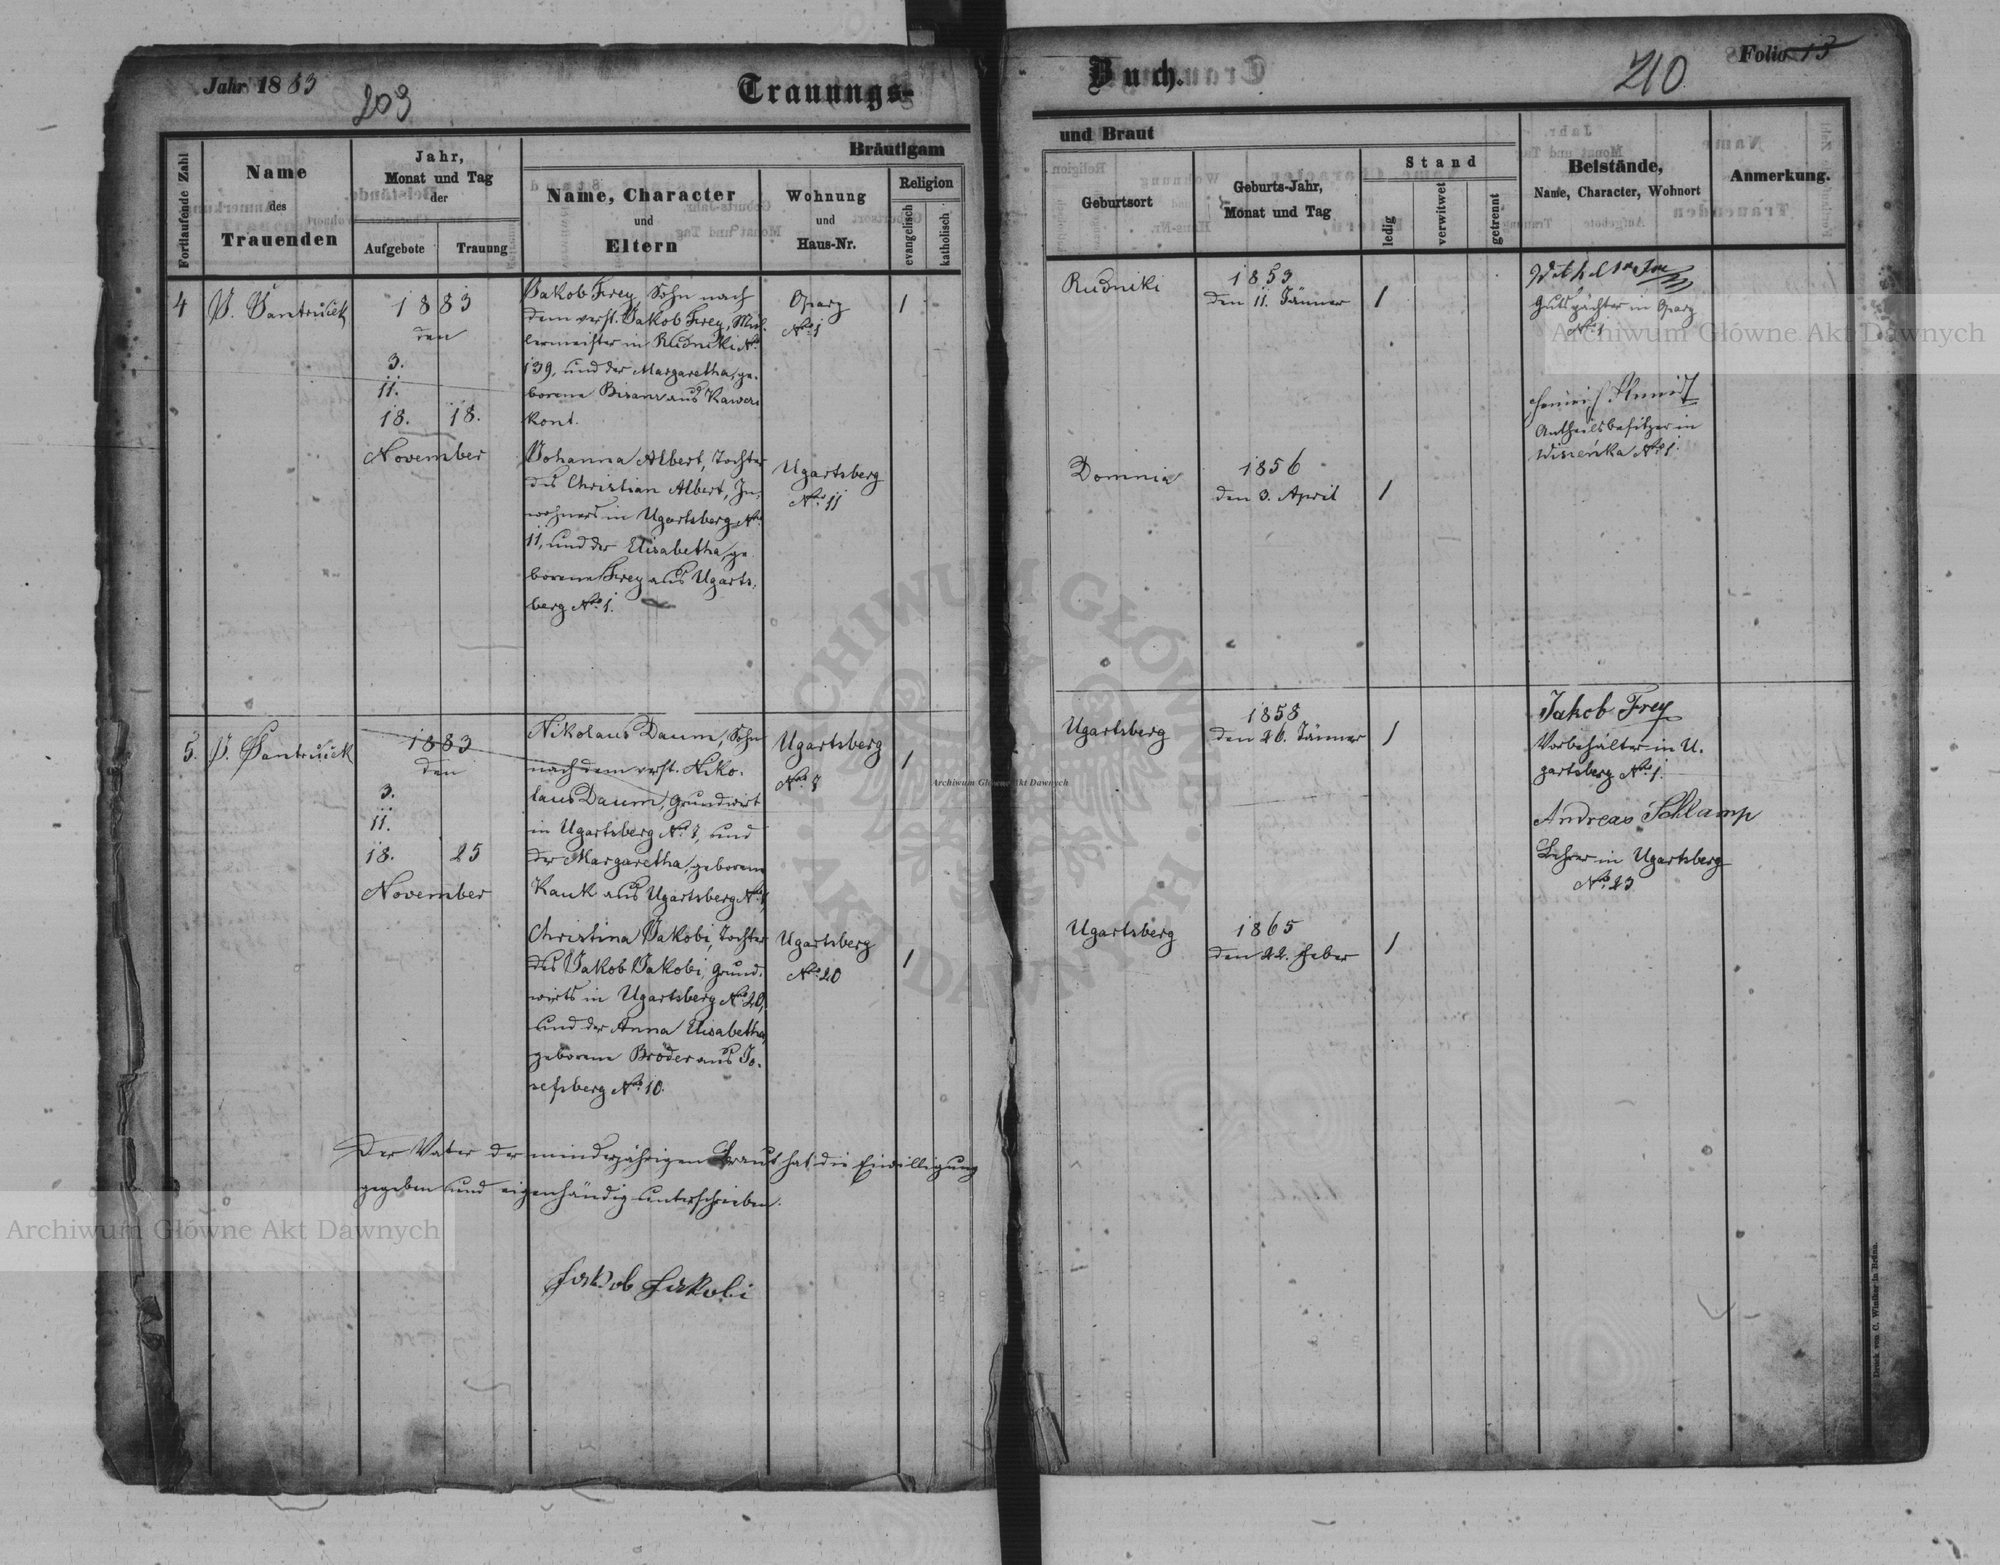 Jahr 1883
203
Trauungs-
Buch.
210
Folio 13
Fortlaufende Zahl
Name
des
Trauenden
Jahr,
Monat und Tag
der
Aufgebote
Trauung
Bräutigam
Name, Character
und
Eltern
Wohnung
und
Haus-Nr.
Religion
evangelisch
katholisch
und Braut
Geburtsort
Geburts-Jahr,
Monat und Tag
Stand
ledig
verwitwet
getrennt
Beistände,
Name, Character, Wohnort
Anmerkung.
4
1883
den
3.
11.
18. 18.
November
Jakob Frey, Sohn nach
dem verst. Jakob Frey, Mül-
lermeister in Rudniki No
139, und der Margaretha, ge-
borene Bisanz aus
kont.
Oparz
No 1
1
Rudniki
1853
den 11. Jänner
1
Gutspächter in Oparz
No 1
Antheilsbesitzer in
No 1.
Johanna Albert, Tochter
des Christian Albert, In-
wohners in Ugartsberg No
11, und der Elisabetha, ge-
borene Frey aus Ugarts-
berg No 1.
Ugartsberg
No 11
1856
den 3. April
1
5.
1883
den
3.
11.
18. 25
November
Nikolaus Daum, Sohn
nach dem verst. Niko-
laus Daum, Grundwirt
in Ugartsberg No, und
der Margaretha, geborene
aus Ugartsberg No
Ugartsberg
No
1
Ugartsberg
1858
den 26. Jänner
1
Jakob Frey
Vorbehälter in U-
gartsberg No 1.
Andreas Schlamp
Lehrer in Ugartsberg
No 23
Christina Jakobi, Tochter
des Jakob Jakobi, Grund-
wirts in Ugartsberg No 20,
und der Anna Elisabetha,
geborene Bröder aus Jo-
sefsberg No 10.
Ugartsberg
No 20
1
Ugartsberg
1865
den 22. Feber
1
Der Vater der minderjährigen Braut hat die Einwilligung
gegeben und eigenhändig unterschrieben.
Jakob Jakobi
Druck von C. Winiker in Brünn.
Archiwum Główne Akt Dawnych
Archiwum Główne Akt Dawnych
Archiwum Główne Akt Dawnych
ARCHIWUM GŁÓWNE AKT DAWNYCH